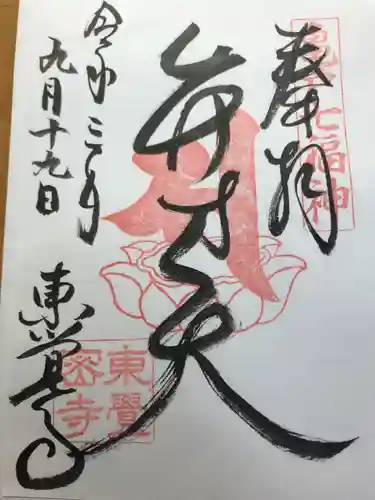 奉拝
亀戸七福神
弁才天
令和三年
九月十九日
東覚寺
東覺
密寺